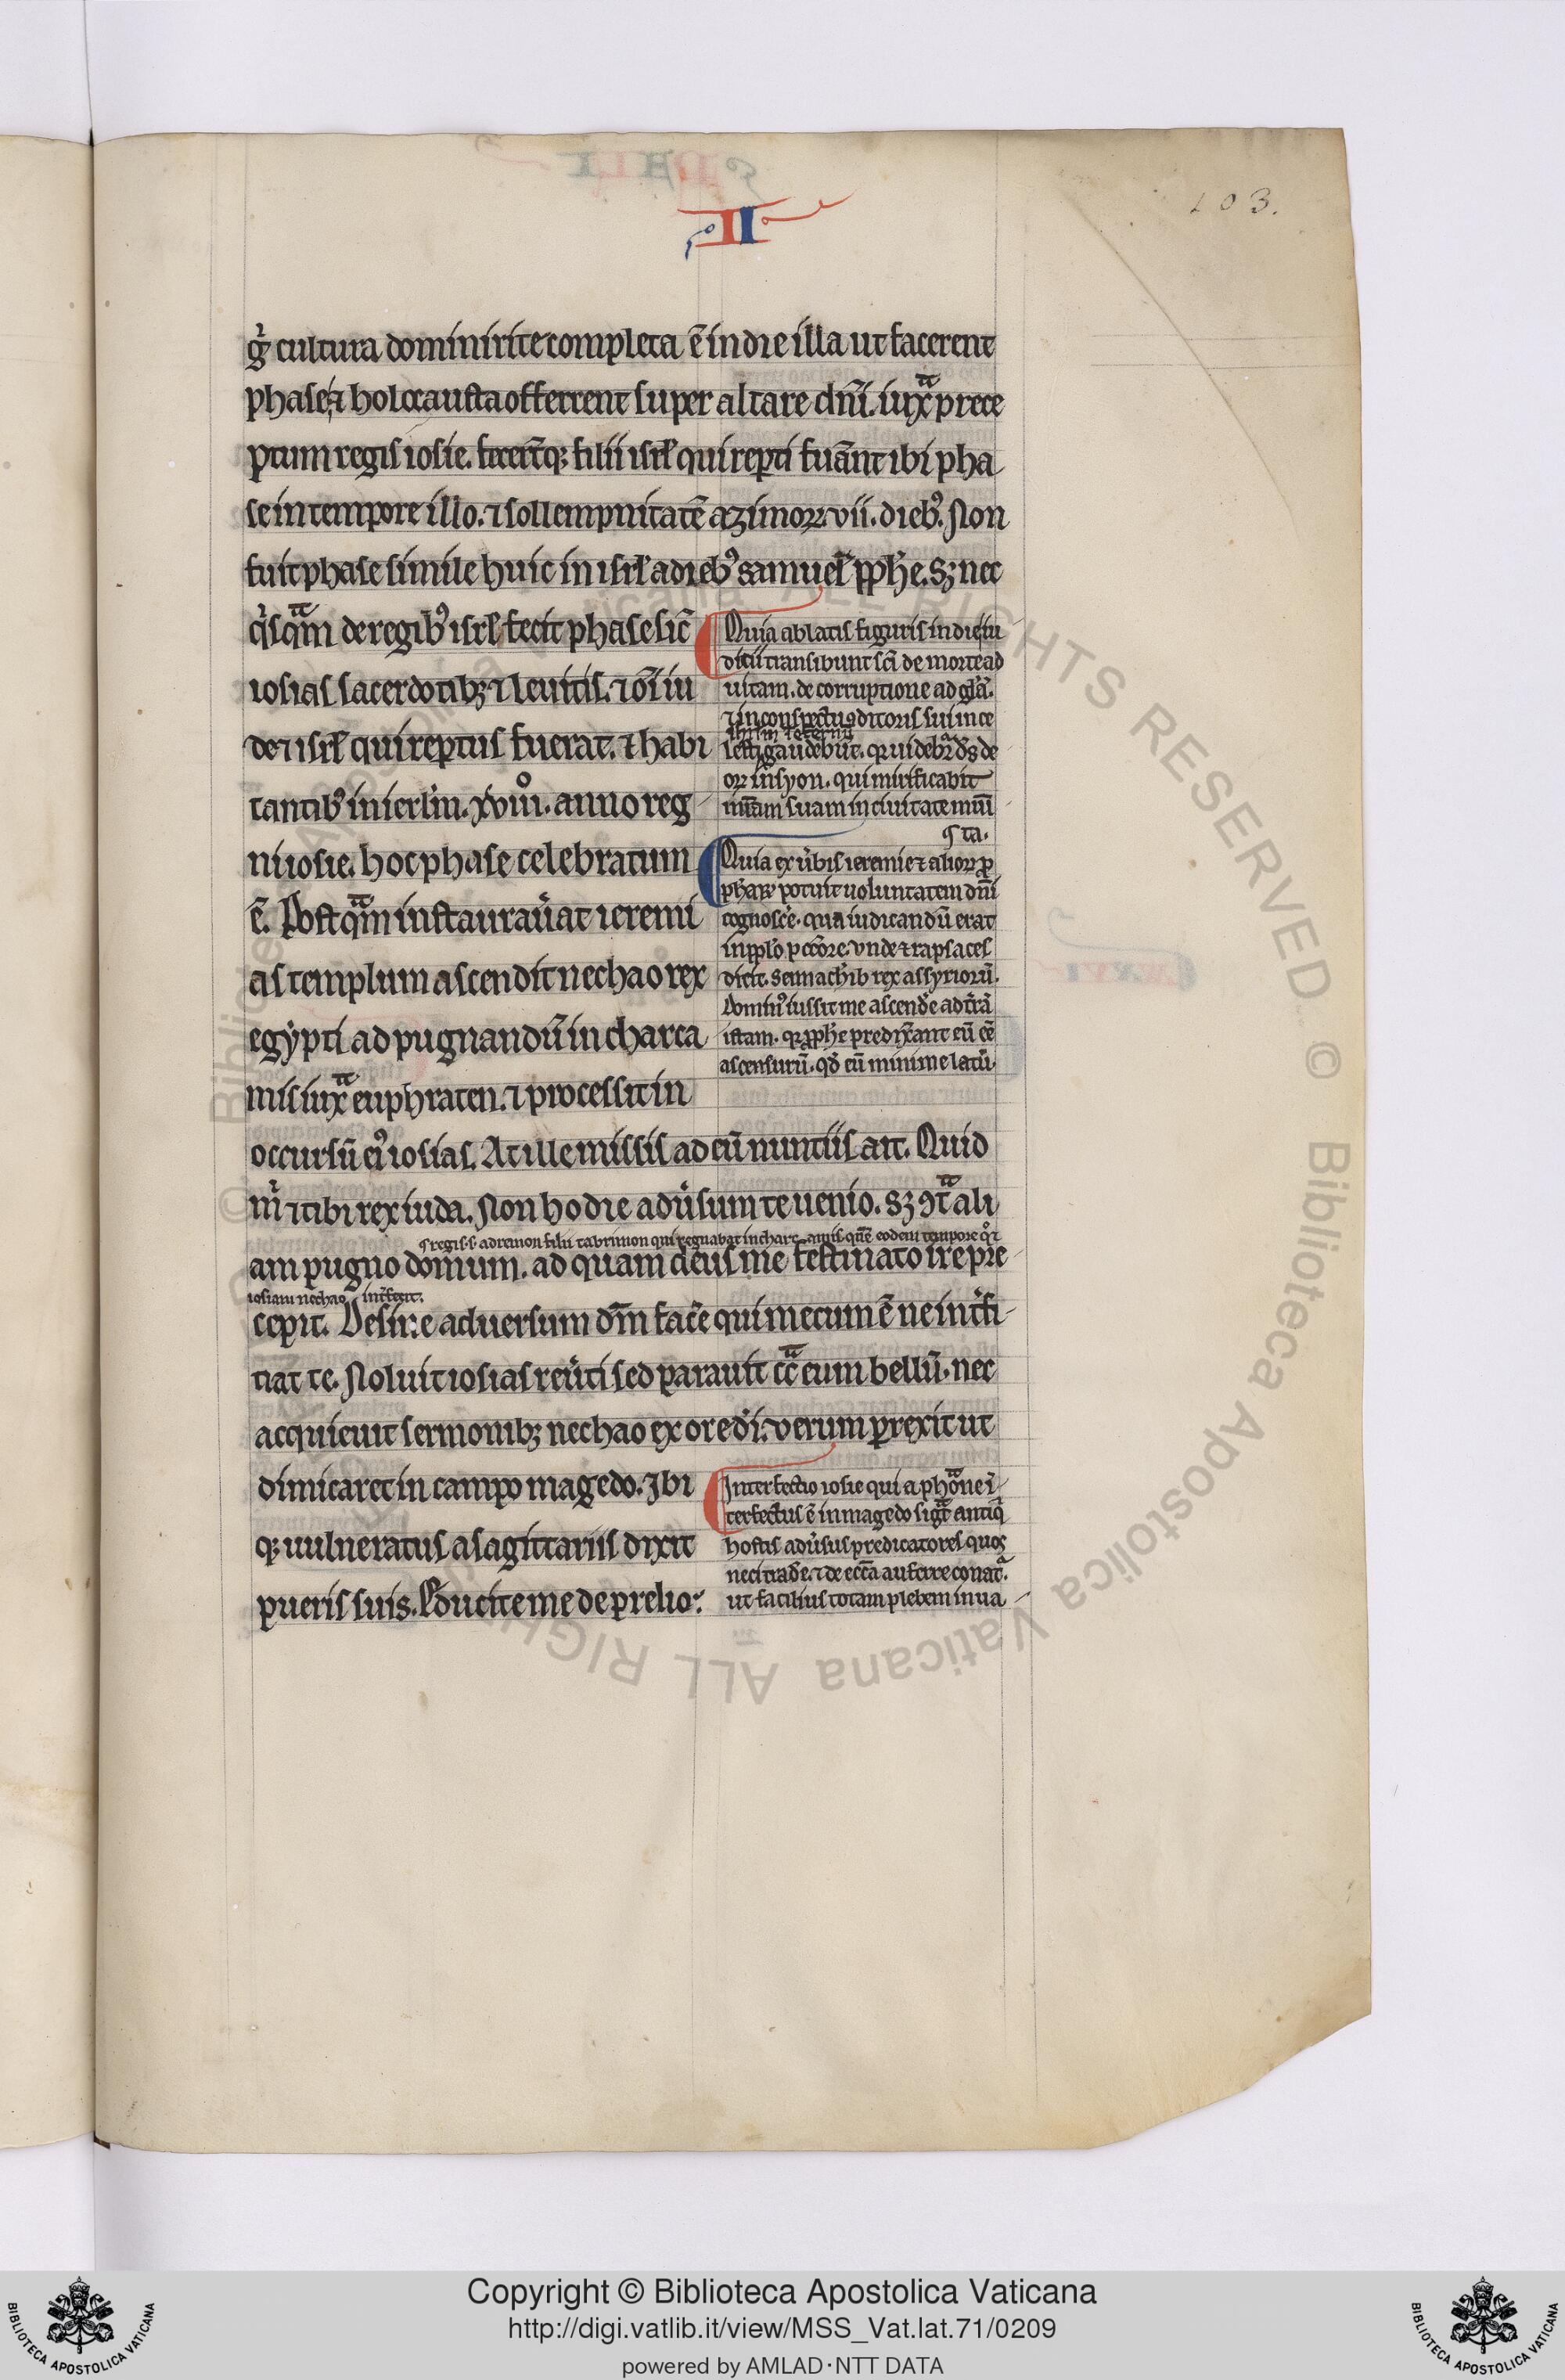 103.
II
gͥ cultura domini rite completa ē in die illa ut facerent
phase ⁊ holocausta offerrent super altare dn̄i. iuxͣ prece
ptum regis iosie. fecert̄q; filii isrl̄ qui reperti fuānt ibi pha
se in tempore illo. ⁊ sollempnitatē azimoꝝ. vii. dieb᷒. Non
fuit phase simile huic in isrl̄ a dieb᷒ samuel̄ ꝓph̄e. sꝫ nec
qͥsqͣm de regib᷒ isrl̄ fecit phase sic̄
iosias sacerdotibꝫ ⁊ leuitis. ⁊ oī iu
de ⁊ isrl̄ qui repertus fuerat. ⁊ habi
tantib᷒ in ierl̄m. xviiiͦ. anno reg
ni iosie. hoc phase celebratum
ē. Postqͣm instaurau̓at ieremi
as templum ascendit nechao rex
egypti ad pugnandū in charca
mis iuxͣ euphraten. ⁊ processit in
occursū ei᷒ iosias. At ille missis ad eū nuntiis ait. Quid
mͥ ⁊ tibi rex iuda. Non hodie adu̓sum te uenio. sꝫ ꝯtͣ ali
am pugno domum. ad quam deus me festinato ire pre
cepit. Desine aduersum dm̄ facͤe qui mecum ē ne int̓fi
tiat te. Noluit iosias reu̓ti sed parauit ꝯtͣ eum bellū. nec
acquieuit sermonibꝫ nechao ex ore dī. verum perrexit ut
dimicaret in campo magedo. Ibi
qꝫ uulneratus a sagittariis dixit
pueris suis. Educite me de prelio.
¶ regis .s. adremon filii tabrimon qui regnabat in charcamis. quē eodem tempore qͦ ⁊
iosiam nechao int̓fecit.
Quia ablatis figuris in die iu
dicii transibunt sc̄i de morte ad
uitam. de corruptione ad gl̄a.
⁊ in conspectu ꝯditoris sui ince
ssant̓ gaudebūt. qꝛ uidebꝛ̄ ds̄ de
oꝝ in syon. qui mirificabit
mīam suam in ciuitate muni
¶ ta.
Quia ex u̓bis ieremie ⁊ alioꝝ ꝓ
phaꝝ potuit uoluntatem dn̄i
cognosce̓. qua iudicandū erat
in ppl̄o peccōre. vnde ⁊ rapsaces
dicit. sennacherib rex assyriorū.
Domin᷒ iussit me ascende̓ ad t̓rā
istam. qꝛ ꝓph̄e predixͣant eū eē
ascensurū. qd̓ eū minime latū.
Interfectio iosie qui a pharͣone ī
terfectus ē in magedo sigͣt antiqͥ
hostis adu̓sus predicatores quos
neci trade̓. ⁊ de ecc̄a auferre conatͣ.
ut facilius totam plebem inua
Copyright © Biblioteca Apostolica Vaticana
http://digi.vatlib.it/view/MSS_Vat.lat.71/0209
powered by AMLAD·NTT DATA